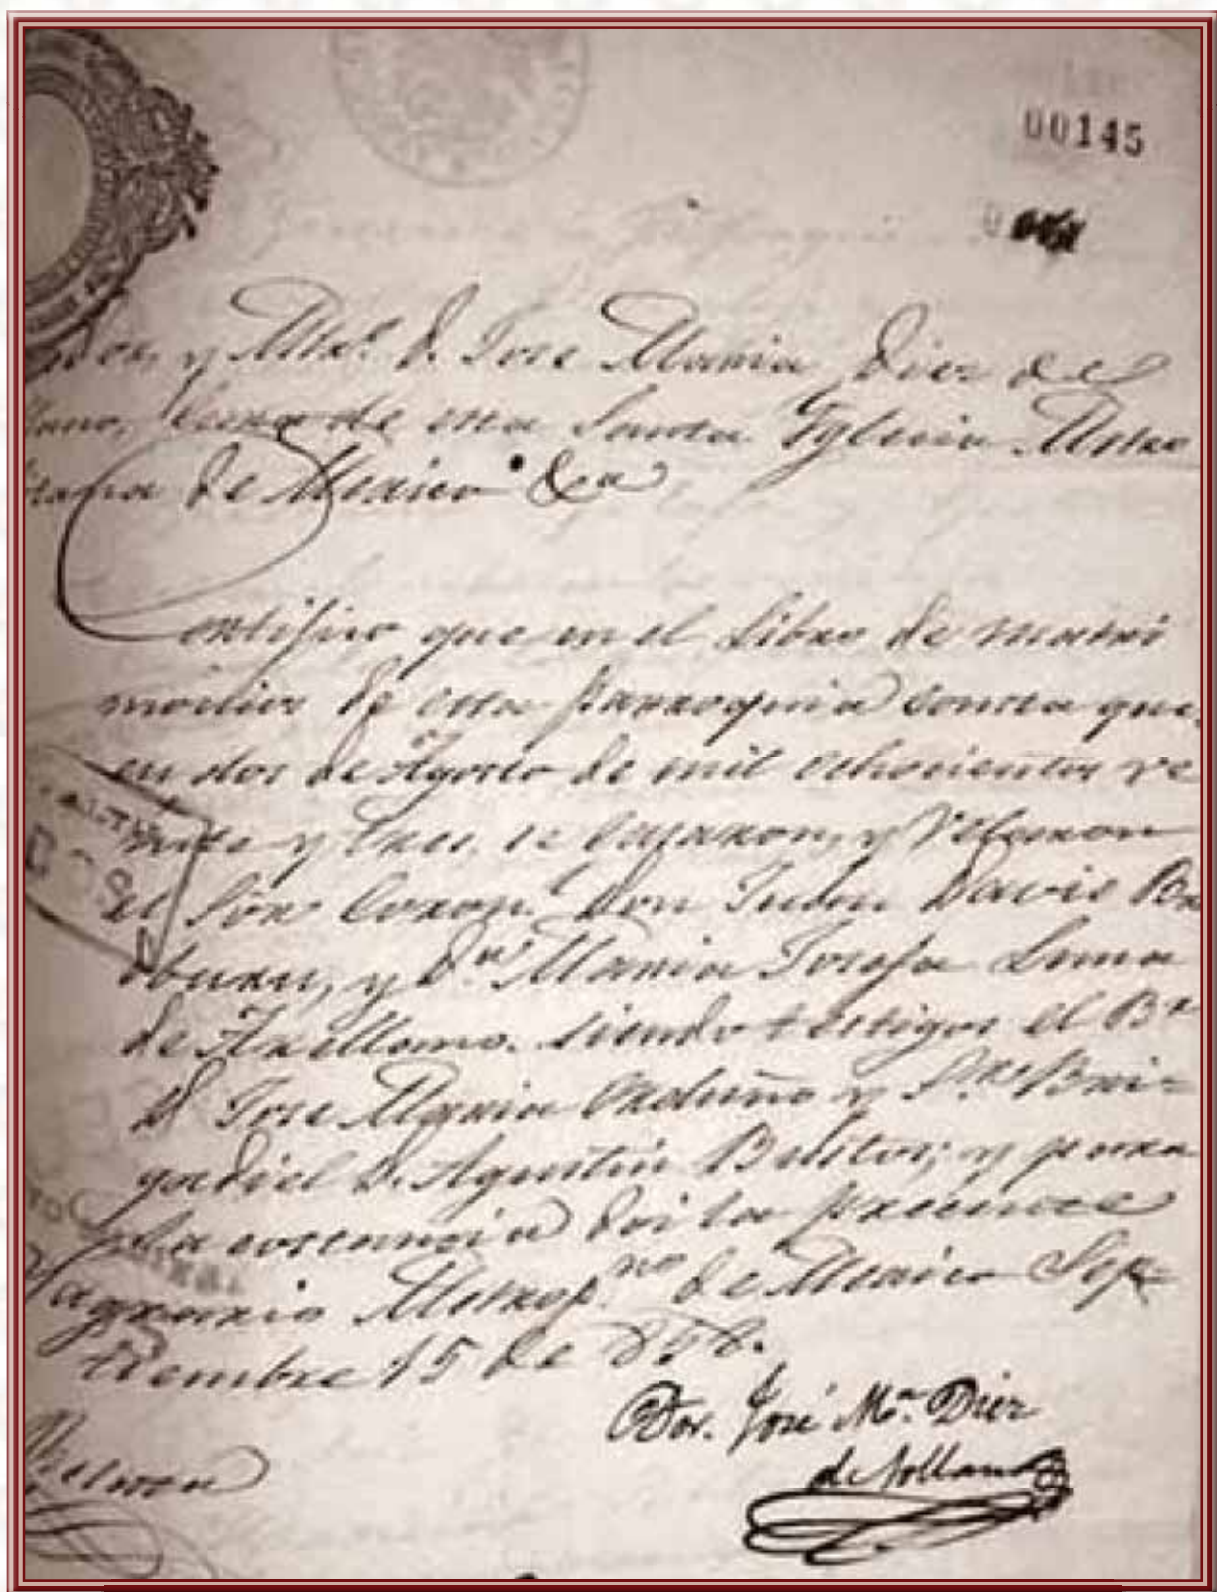 00145
y Mtro. D. Jose Maria Diez de
llano, Cura de esta Santa Yglecia Metro
litana de Mexico &a
Certifico que en el Libro de matri
monios de esta parroquia consta que
en dos de Agosto de mil ochocientos ve
inte y tres, se casaron, y Velaron
el Sōr Coron.l Don Juan Davis Bra
dburn, y D.ª Maria Josefa Luna
de Arellano. siendo testigos el Br
D. Jose Maria Orduño y Sr. Bri=
gadiel D. Agustin Bustos; y para
la costancia doi la presente
Sagrario Metrop.no de Mexico Sep=
tiembre 15 de 858.
Dor. José Mª. Diez
de Sollano